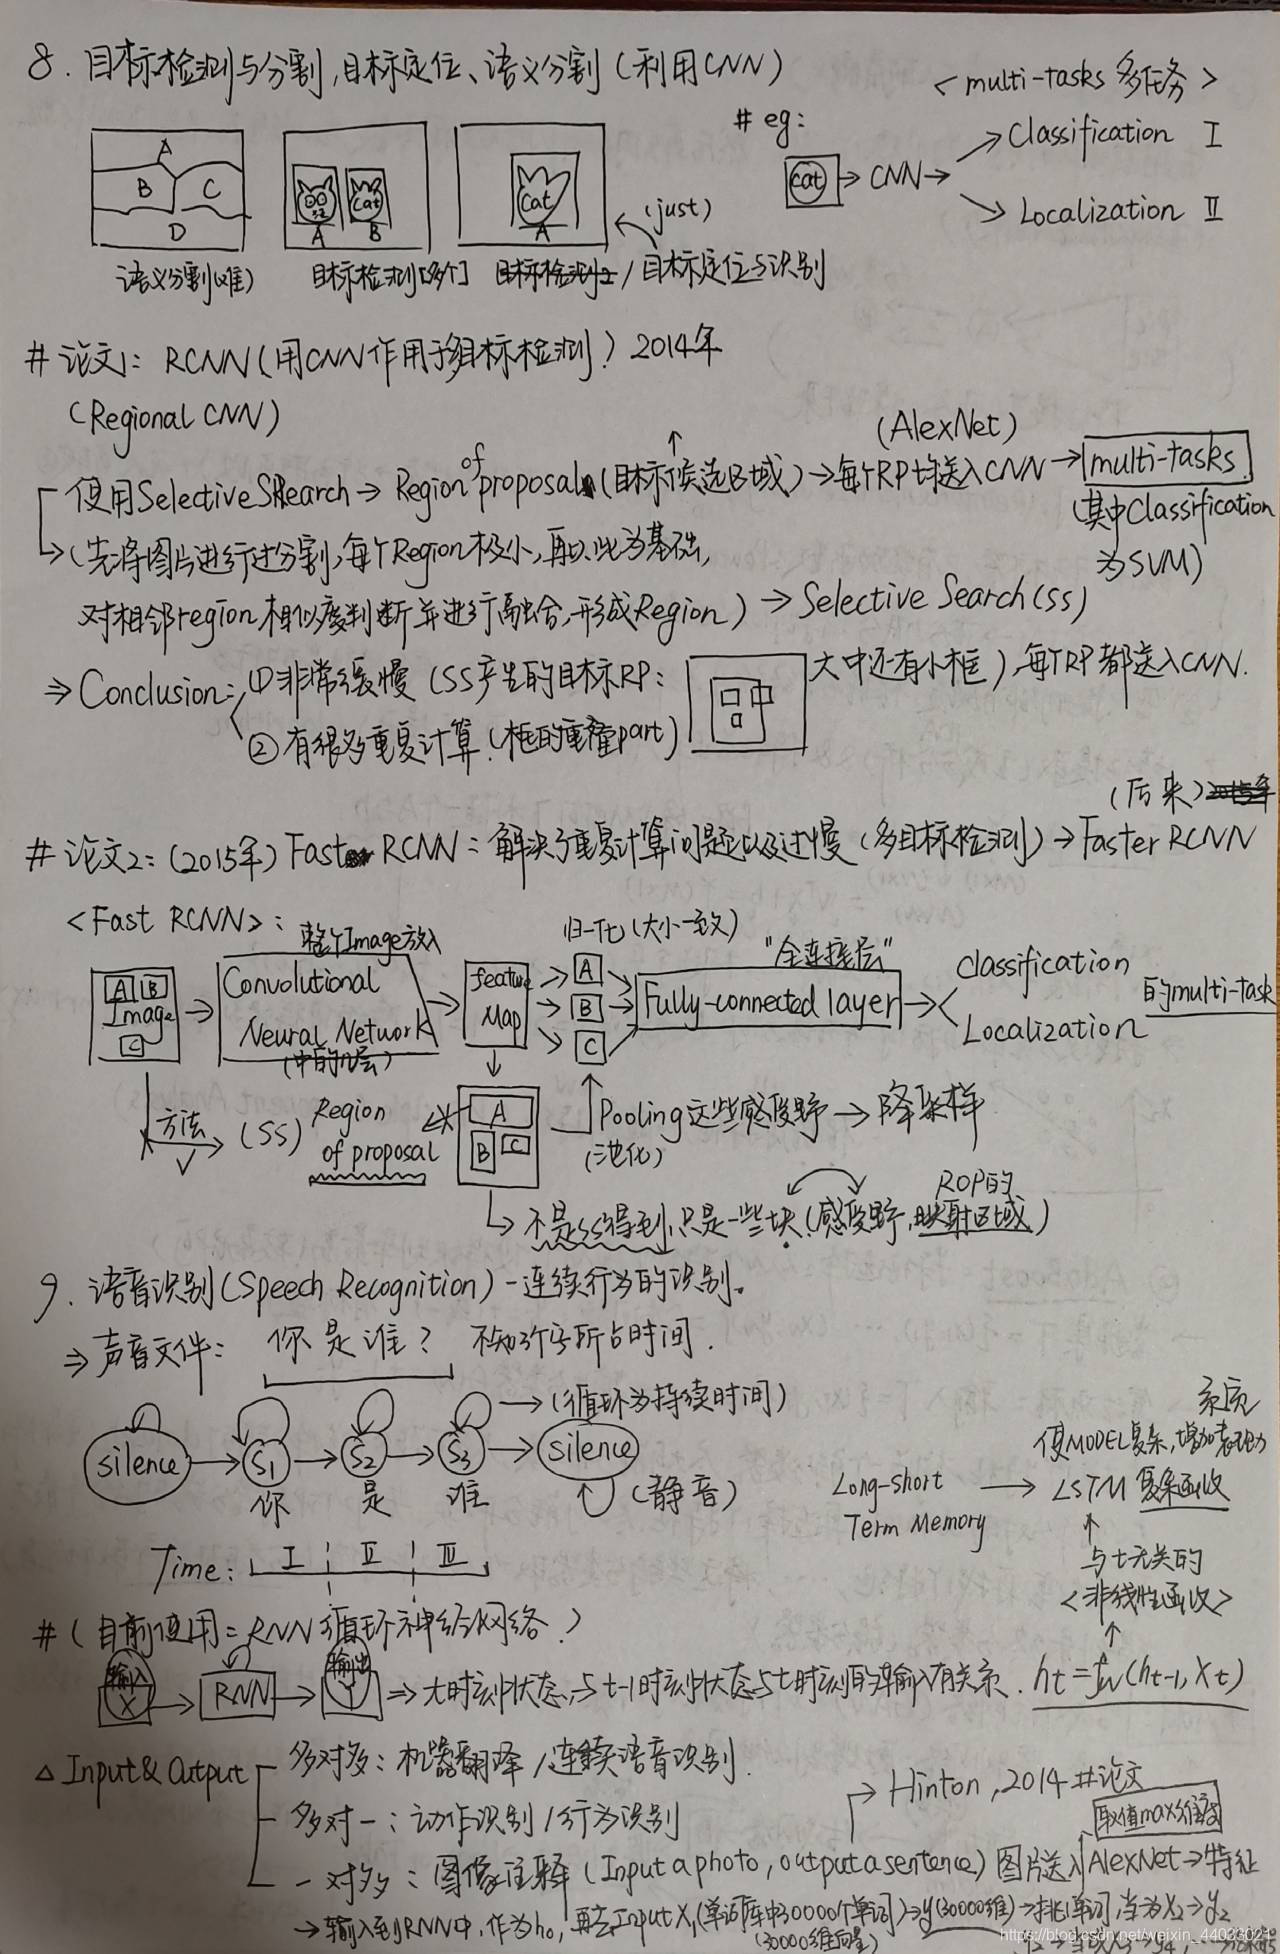 8. 目标检测与分割,目标定位、语义分割(利用CNN)
<multi-tasks 多任务>
# eg:
cat → CNN → Classification I
Localization II
A
B C
D
A B
cat
cat
A
(just)
语义分割(难)
目标检测[多个]
目标检测2 / 目标定位与识别
# 论文1: RCNN(用CNN作用于多目标检测) 2014年
(Regional CNN)
(AlexNet)
使用Selective Search → Region of proposal(目标候选区域) → 每个RP均送入CNN → multi-tasks
(其中Classification
为SVM)
→(先将图片进行过分割,每个Region极小,再以此为基础,
对相邻region相似度判断并进行融合,形成Region) → Selective Search(SS)
⇒ Conclusion: ①非常缓慢(SS产生的目标RP: 大中还有小框),每个RP都送入CNN.
②有很多重复计算.(框的重叠part)
(后来)2015年
# 论文2: (2015年) Fast RCNN: 解决了重复计算问题以及过慢(多目标检测) → Faster RCNN
<Fast RCNN>:
整个Image放入
归一化(大小一致)
"全连接层"
A B
Image
C
Convolutional
Neural Network
(中的n层)
feature
Map
A
B
C
Fully-connected layer
Classification
Localization
的multi-task
方法
(SS)
Region
of proposal
A
B C
Pooling这些感受野 → 降采样
(池化)
ROP的
不是SS得到,只是一些块.(感受野,映射区域)
9. 语音识别(Speech Recognition) - 连续行为的识别。
⇒ 声音文件: 你是谁? 不知3个字所占时间.
→ (循环为持续时间)
silence → S1 → S2 → S3 → silence
你 是 谁
(静音)
Time: I II III
系统
使MODEL复杂,增加表现力
Long-short
Term Memory
→ LSTM 复杂函数
与t无关的
<非线性函数>
# (目前使用: RNN 循环神经网络)
输入
X → RNN → 输出
Y
⇒ t时刻状态,与t-1时刻状态与t时刻的输入有关系. ht = fw(ht-1, Xt)
△ Input & Output
多对多: 机器翻译 / 连续语音识别.
多对一: 动作识别 / 行为识别
→ Hinton, 2014 #论文
取值max维度
一对多: 图像注释 (Input a photo, output a sentence) 图片送入AlexNet → 特征
→ 输入到RNN中,作为h0,再去Input X1(单词库中30000个单词) → y(30000维) → 挑1单词,当为X2 → y2
(30000维向量)
https://blog.csdn.net/weixin_44023021